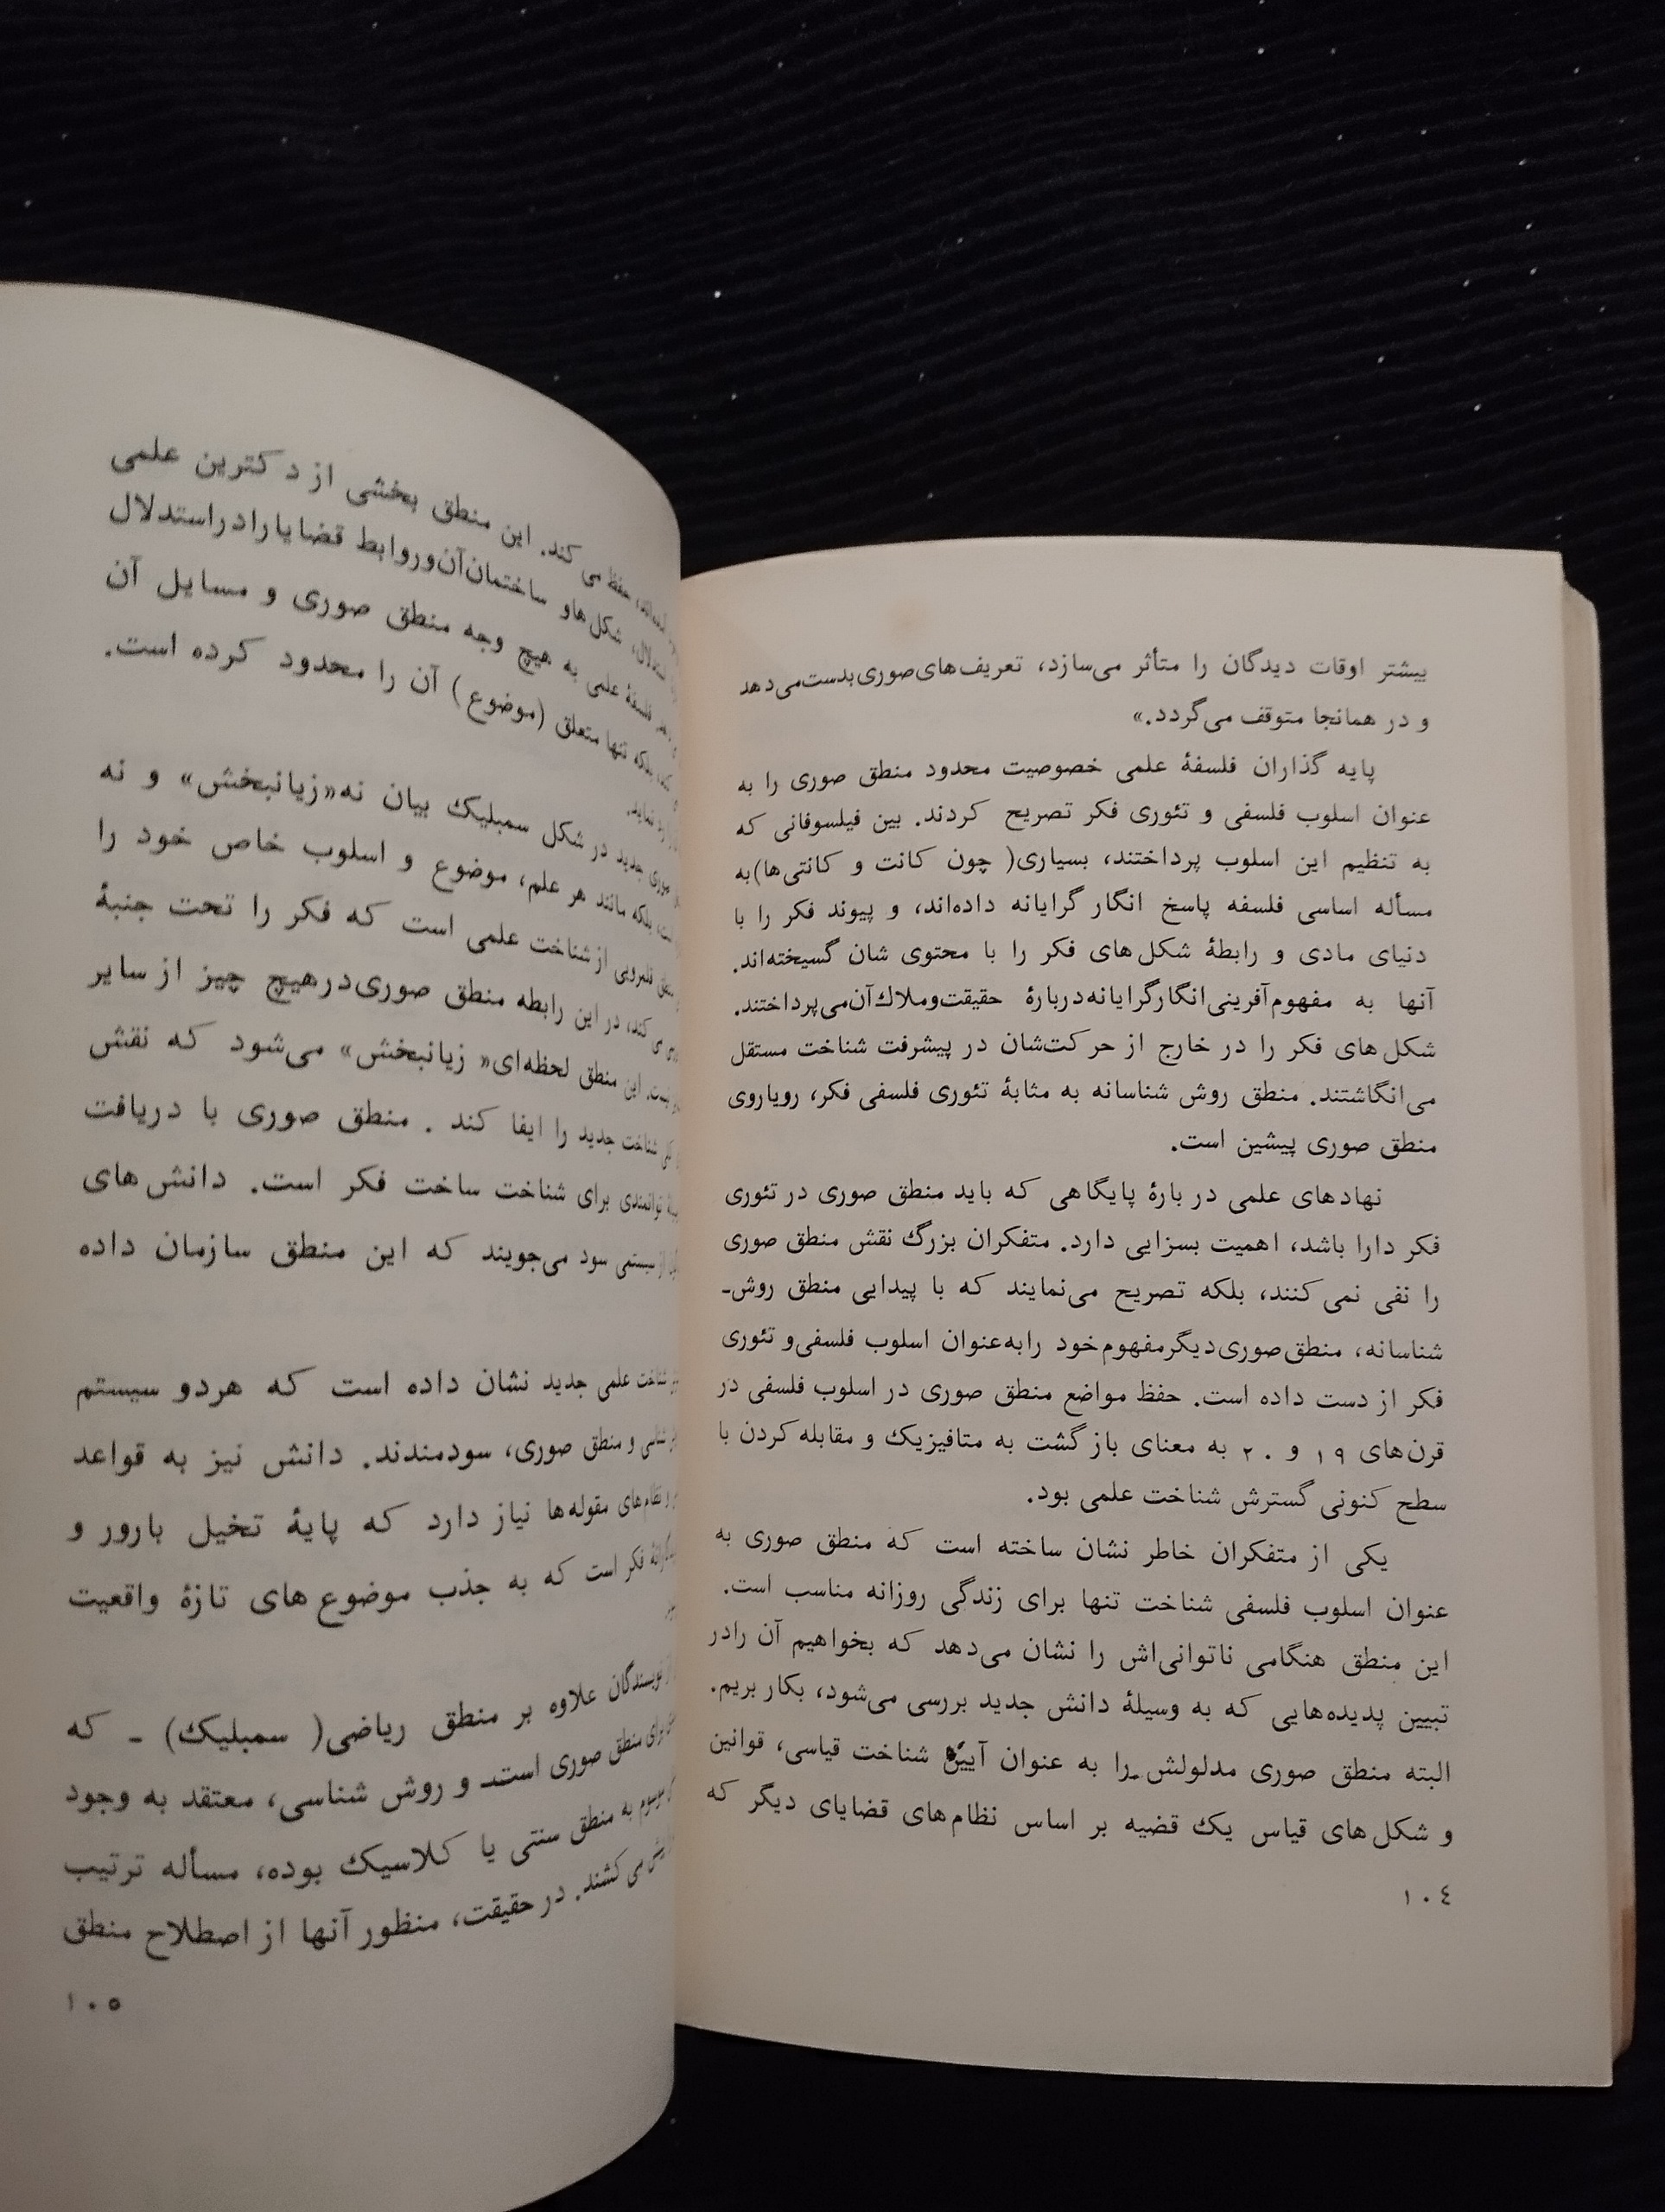 بیشتر اوقات دیدگان را متأثر می‌سازد، تعریف‌های‌صوری‌بدست‌می‌دهد
و در همانجا متوقف می‌گردد.»
پایه گذاران فلسفهٔ علمی خصوصیت محدود منطق صوری را به
عنوان اسلوب فلسفی و تئوری فکر تصریح کردند. بین فیلسوفانی که
به تنظیم این اسلوب پرداختند، بسیاری( چون کانت و کانتی‌ها)به
مسأله اساسی فلسفه پاسخ انگار گرایانه داده‌اند، و پیوند فکر را با
دنیای مادی و رابطهٔ شکل‌های فکر را با محتوی شان گسیخته‌اند.
آنها به مفهوم‌آفرینی‌انگارگرایانه‌دربارهٔ حقیقت‌وملاك‌آن‌می‌پرداختند.
شکل‌های فکر را در خارج از حرکت‌شان در پیشرفت شناخت مستقل
می‌انگاشتند. منطق روش شناسانه به مثابهٔ تئوری فلسفی فکر، رویاروی
منطق صوری پیشین است.
نهادهای علمی در بارهٔ پایگاهی که باید منطق صوری در تئوری
فکر دارا باشد، اهمیت بسزایی دارد. متفکران بزرگ نقش منطق صوری
را نفی نمی‌کنند، بلکه تصریح می‌نمایند که با پیدایی منطق روش-
شناسانه، منطق‌صوری‌دیگرمفهوم‌خود رابه‌عنوان اسلوب فلسفی‌و تئوری
فکر از دست داده است. حفظ مواضع منطق صوری در اسلوب فلسفی در
قرن‌های ۱۹ و ۲۰ به معنای بازگشت به متافیزیك و مقابله کردن با
سطح کنونی گسترش شناخت علمی بود.
یکی از متفکران خاطر نشان ساخته است که منطق صوری به
عنوان اسلوب فلسفی شناخت تنها برای زندگی روزانه مناسب است.
این منطق هنگامی ناتوانی‌اش را نشان می‌دهد که بخواهیم آن رادر
تبیین پدیده‌هایی که به وسیلهٔ دانش جدید بررسی می‌شود، بکار بریم.
البته منطق صوری مدلولش را به عنوان آیین شناخت قیاسی، قوانین
و شکل‌های قیاس یك قضیه بر اساس نظام‌های قضایای دیگر که
۱۰۴
حفظ می کند. این منطق بخشی از دکترین علمی
شکل‌هاو ساختمان‌آن‌وروابط قضایارادراستدلال
فلسفهٔ علمی به هیچ وجه منطق صوری و مسایل آن
بلکه تنها متعلق (موضوع) آن را محدود کرده است.
جدید در شکل سمبلیك بیان نه«زیانبخش» و نه
بلکه مانند هر علم، موضوع و اسلوب خاص خود را
از شناخت علمی است که فکر را تحت جنبهٔ
می کند، در این رابطه منطق صوری‌درهیچ چیز از سایر
این منطق لحظه‌ای« زیانبخش» می‌شود که نقش
شناخت جدید را ایفا کند . منطق صوری با دریافت
توانمندی برای شناخت ساخت فکر است. دانش‌های
سیستمی سود می‌جویند که این منطق سازمان داده
شناخت علمی جدید نشان داده است که هردو سیستم
و منطق صوری، سودمندند. دانش نیز به قواعد
و نظام‌های مقوله‌ها نیاز دارد که پایهٔ تخیل بارور و
فکر است که به جذب موضوع‌های تازهٔ واقعیت
نویسندگان علاوه بر منطق ریاضی( سمبلیك) - که
برای منطق صوری است- و روش شناسی، معتقد به وجود
موسوم به منطق سنتی یا کلاسیك بوده، مسأله ترتیب
می کشند. در حقیقت، منظور آنها از اصطلاح منطق
۱۰۵